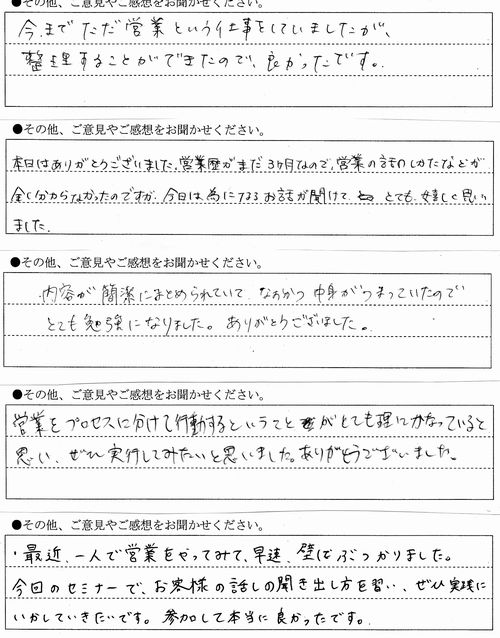 ●その他、ご意見やご感想をお聞かせください。
今までただ営業という仕事をしていましたが、
整理することができたので、良かったです。
●その他、ご意見やご感想をお聞かせください。
本日はありがとうございました。営業歴がまだ3ヶ月なので、営業の話のしかたなどが
全く分からなかったのですが、今日は為になるお話が聞けて、とても嬉しく思い
ました。
●その他、ご意見やご感想をお聞かせください。
内容が簡潔にまとめられていて、なおかつ中身がつまっていたので
とても勉強になりました。ありがとうございました。
●その他、ご意見やご感想をお聞かせください。
営業をプロセスに分けて行動するということがとても理にかなっていると
思い、ぜひ実行してみたいと思いました。ありがとうございました。
●その他、ご意見やご感想をお聞かせください。
・最近、一人で営業をやってみて、早速、壁にぶつかりました。
今回のセミナーで、お客様の話しの聞き出し方を習い、ぜひ実践に
いかしていきたいです。参加して本当に良かったです。